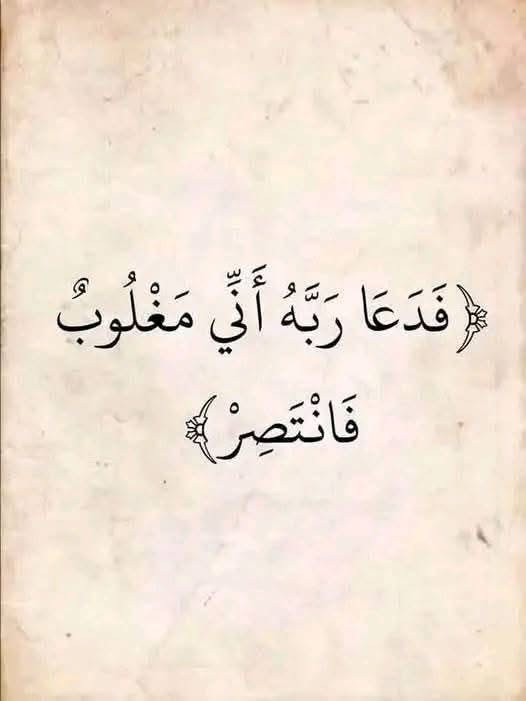 ﴿فَدَعَا رَبَّهُ أَنِّي مَغْلُوبٌ
فَانْتَصِرْ﴾